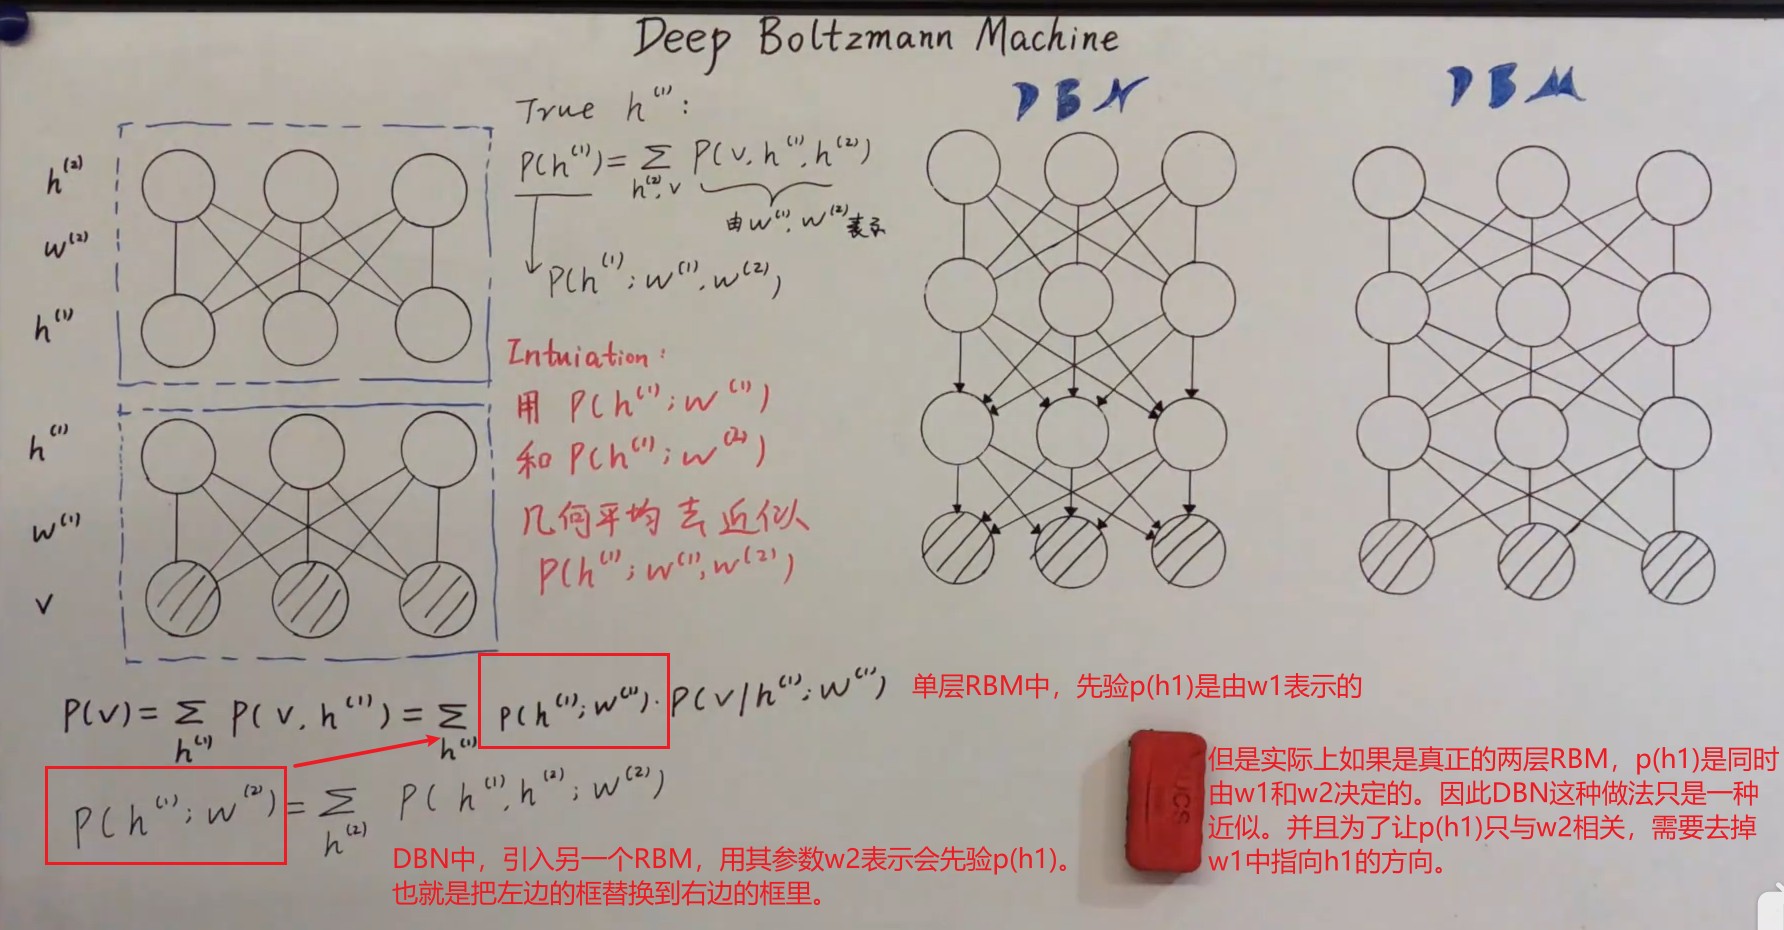 Deep Boltzmann Machine
DBN
DBM
h⁽²⁾
w⁽²⁾
h⁽¹⁾
h⁽¹⁾
w⁽¹⁾
v
True h⁽¹⁾:
P(h⁽¹⁾) = Σ P(v, h⁽¹⁾, h⁽²⁾)
h⁽²⁾, v
由w⁽¹⁾, w⁽²⁾表示
P(h⁽¹⁾; w⁽¹⁾, w⁽²⁾)
Intuiation:
用 P(h⁽¹⁾; w⁽¹⁾)
和 P(h⁽¹⁾; w⁽²⁾)
几何平均去近似
P(h⁽¹⁾; w⁽¹⁾, w⁽²⁾)
P(v) = Σ P(v, h⁽¹⁾) = Σ P(h⁽¹⁾; w⁽¹⁾) · P(v|h⁽¹⁾; w⁽¹⁾)
h⁽¹⁾ h⁽¹⁾
单层RBM中，先验p(h1)是由w1表示的
P(h⁽¹⁾; w⁽²⁾) = Σ P(h⁽¹⁾, h⁽²⁾; w⁽²⁾)
h⁽²⁾
DBN中，引入另一个RBM，用其参数w2表示会先验p(h1)。
也就是把左边的框替换到右边的框里。
UCS
但是实际上如果是真正的两层RBM，p(h1)是同时
由w1和w2决定的。因此DBN这种做法只是一种
近似。并且为了让p(h1)只与w2相关，需要去掉
w1中指向h1的方向。